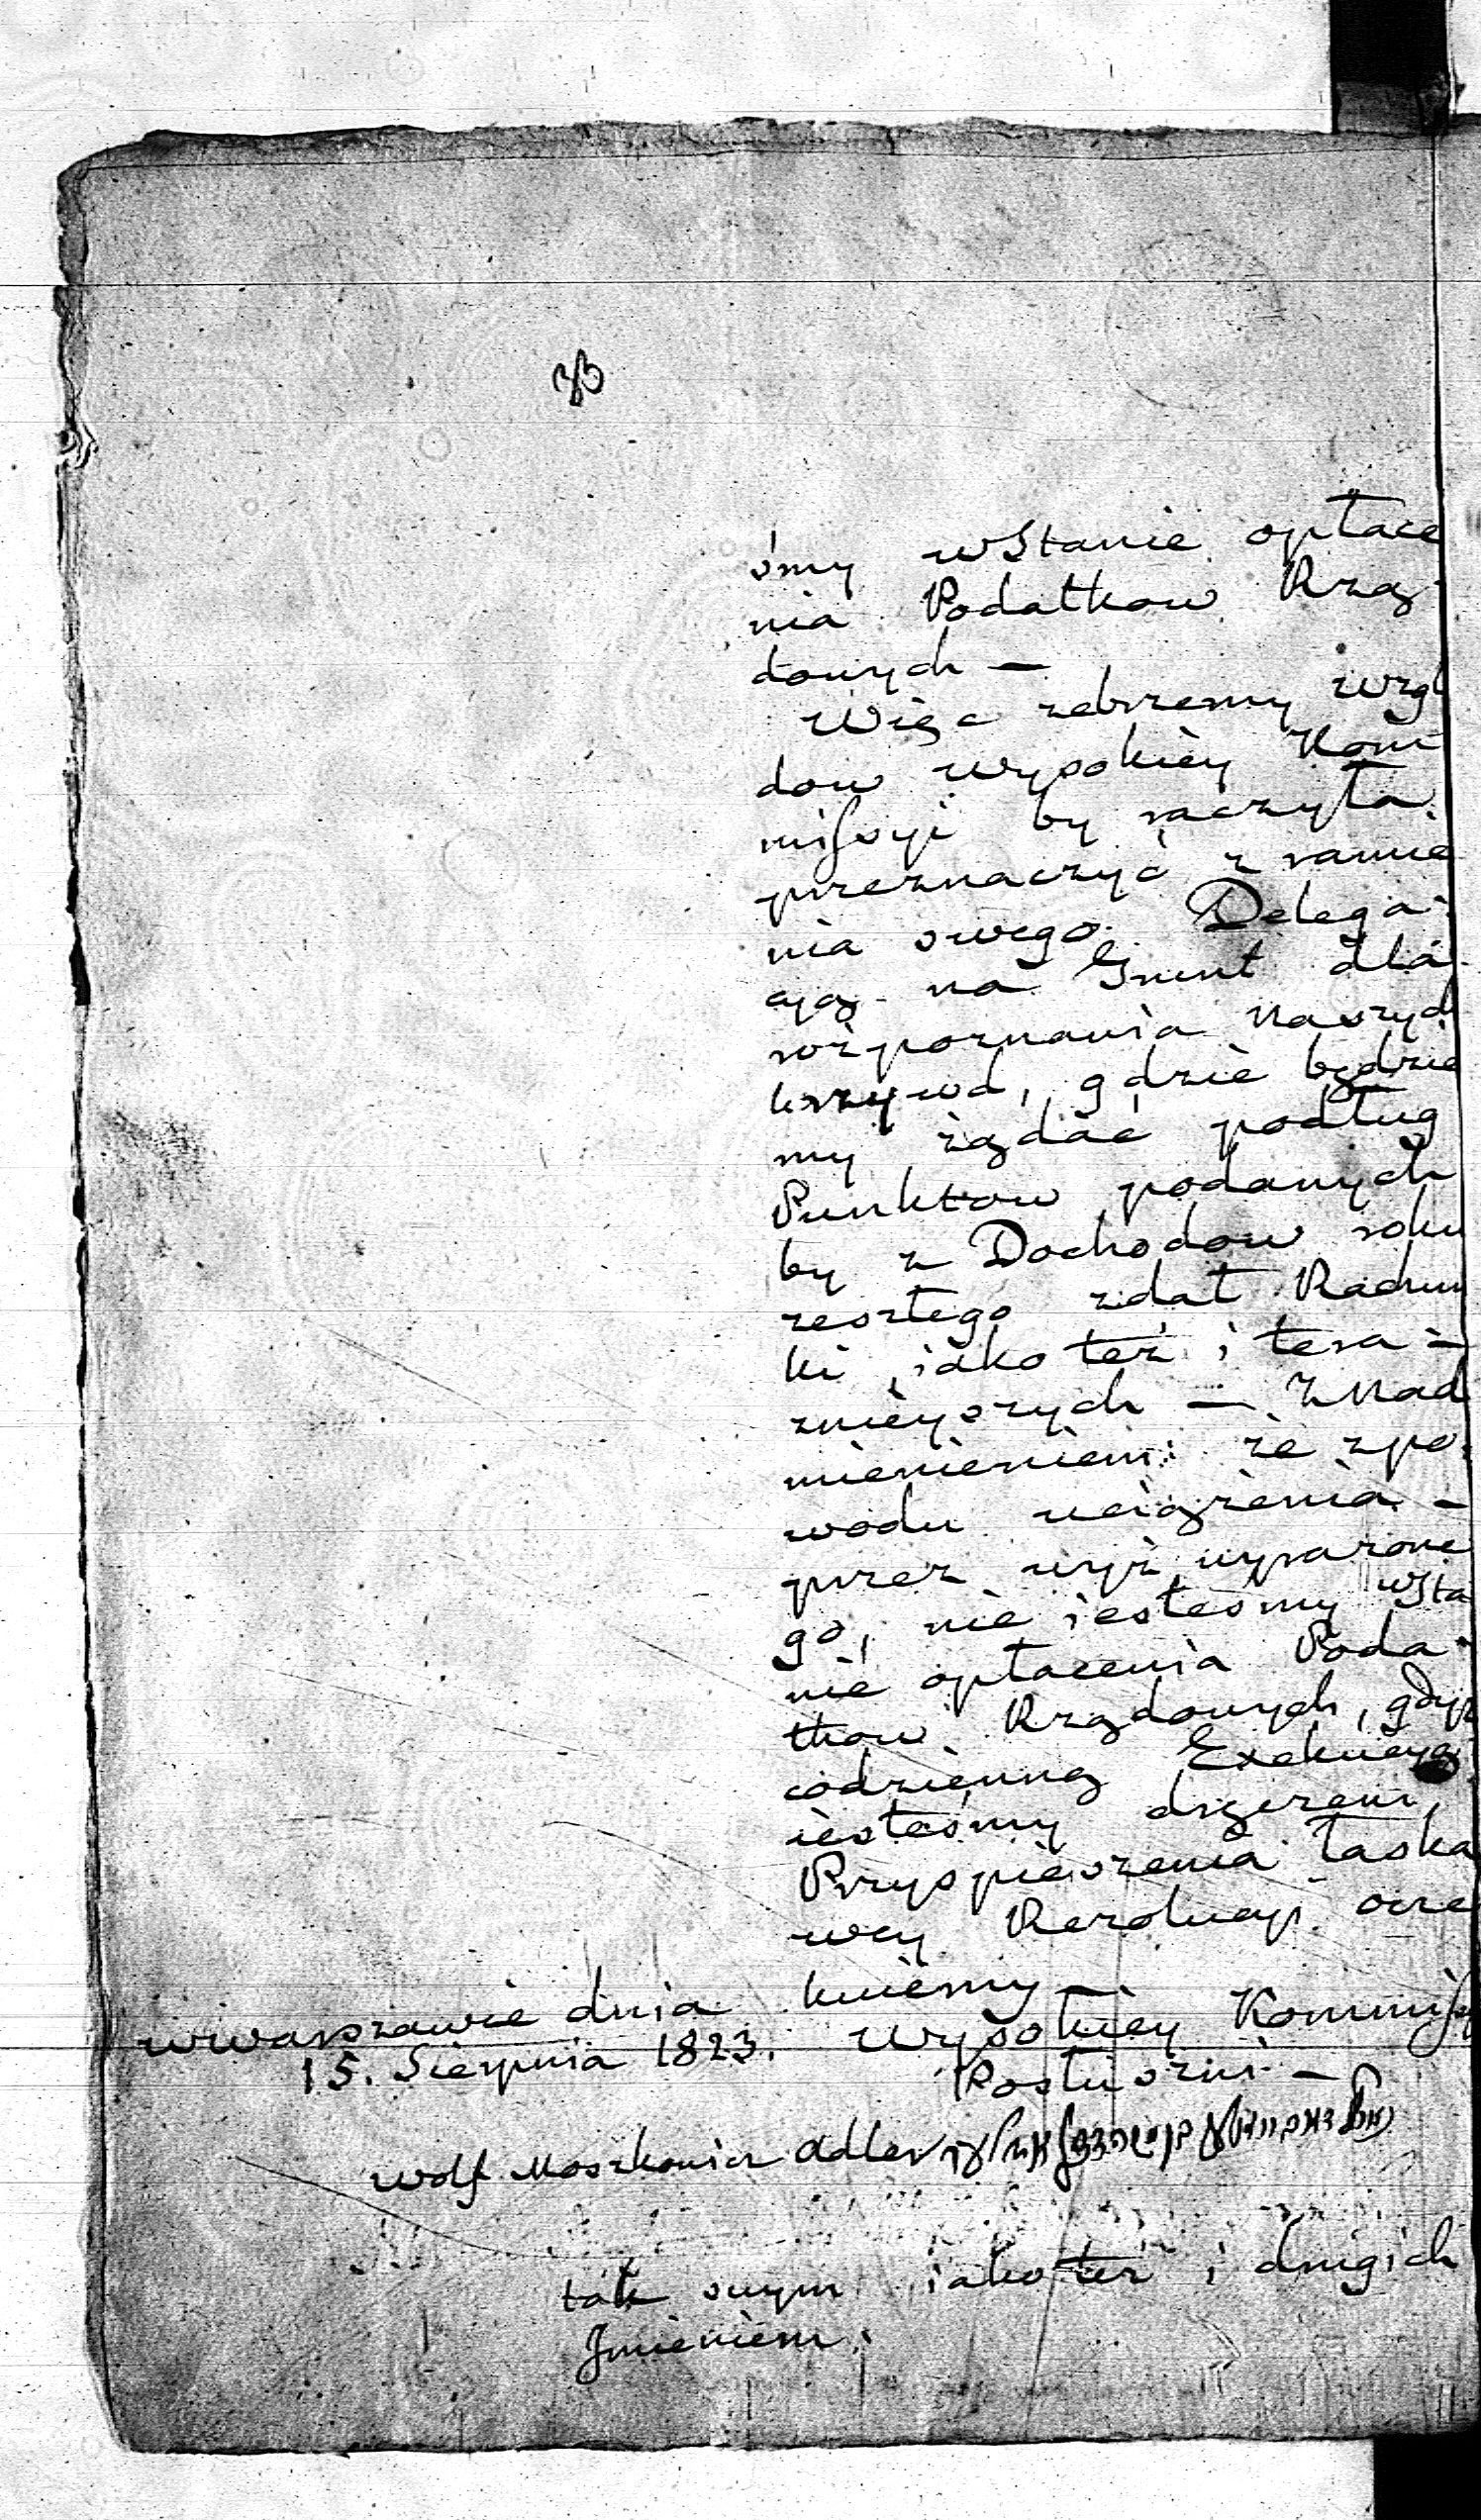 śmy w Stanie opłace
nia Podatkow Rzą
dowych —
Więc żebrzemy wzgl
dow wysokiey Kom
missyi by raczyła
przeznaczyć z ramie
nia swego Delega-
cyą na Grunt dla
rozpoznania Naszych
krzywd, gdzie będzie
my żądać podług
Punktow podanych
by z Dochodow roku
zeszłego zdał Rachun
ki iako też i tera-
znieyszych — Z Nad
mienieniem: że z po-
wodu uciążenia -
przez wyż wyrażone
go, nie iesteśmy w Sta
nie opłacenia Poda-
tkow Rządowych, gdyż
codzienną Exekucyą
iesteśmy dręczeni,
Przyspieszenia łaska
wey Rezolucyi ocze
kuiemy —
w Warszawie dnia
15. Sierpnia 1823.
Wysokiey Kommissy
Postuszni —
Wolf Moszkowicz Adler
tak swym iako też i drugich
Jmieniem.